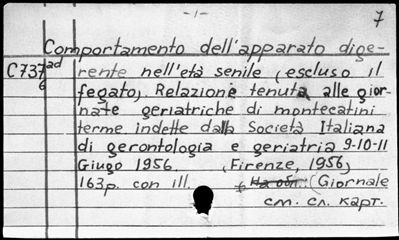 -1-
7
Comportamento dell'apparato dige-
C737ad
6
rente nell'età senile (escluso il
fegato). Relazione tenuta alle gior-
nate geriatriche di montecatini
terme indette dalla Società Italiana
di gerontologia e geriatria 9-10-11
Giugo 1956. (Firenze, 1956)
163p. con ill. (На обл.: (Giornale
см. сл. карт.